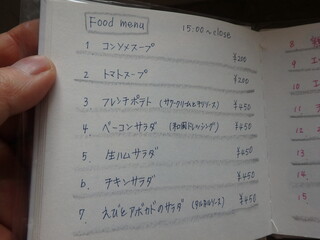 Food menu 15:00〜close
1 コンソメスープ ¥200
2 トマトスープ ¥200
3 フレンチポテト (サワークリーム ¥450
4. ベーコンサラダ (和風ドレッシング) ¥450
5 生ハムサラダ ¥450
6 チキンサラダ ¥450
7. えびとアボカドのサラダ (タルタルソース) ¥450
8
9
10
11
12
13
14
15